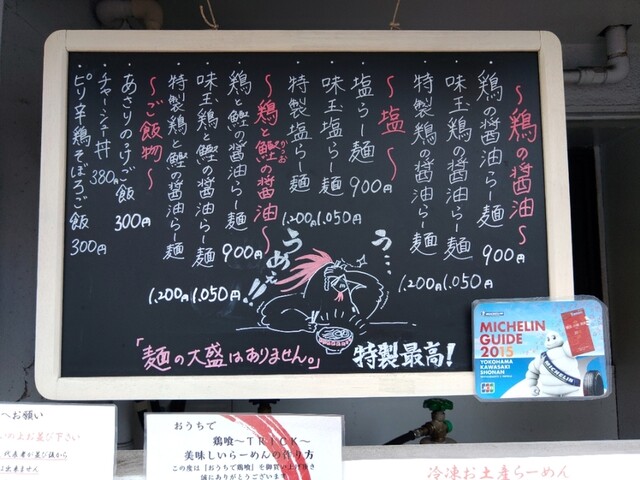 ～鶏の醤油～
・鶏の醤油らー麺 900円
・味玉鶏の醤油らー麺 1,050円
・特製鶏の醤油らー麺 1,200円
～塩～
・塩らー麺 900円
・味玉塩らー麺 1,050円
・特製塩らー麺 1,200円
～鶏と鰹の醤油～
かつお
・鶏と鰹の醤油らー麺 900円
・味玉鶏と鰹の醤油らー麺 1,050円
・特製鶏と鰹の醤油らー麺 1,200円
～ご飯物～
・あさりのっけご飯 300円
・チャーシュー丼 380円
・ピリ辛鶏そぼろご飯 300円
う…
うめぇ!!
「麺の大盛はありません。」
特製最高!
MICHELIN
GUIDE
2015
YOKOHAMA
KAWASAKI
SHONAN
MICHELIN
へお願い
の上お並び下さい
代表者が並び後から
出来ません
おうちで
鶏喰～TRICK～
美味しいらーめんの作り方
この度は「おうちで鶏喰」を御買い上げ頂き
誠にありがとうございます
冷凍お土産らーめん